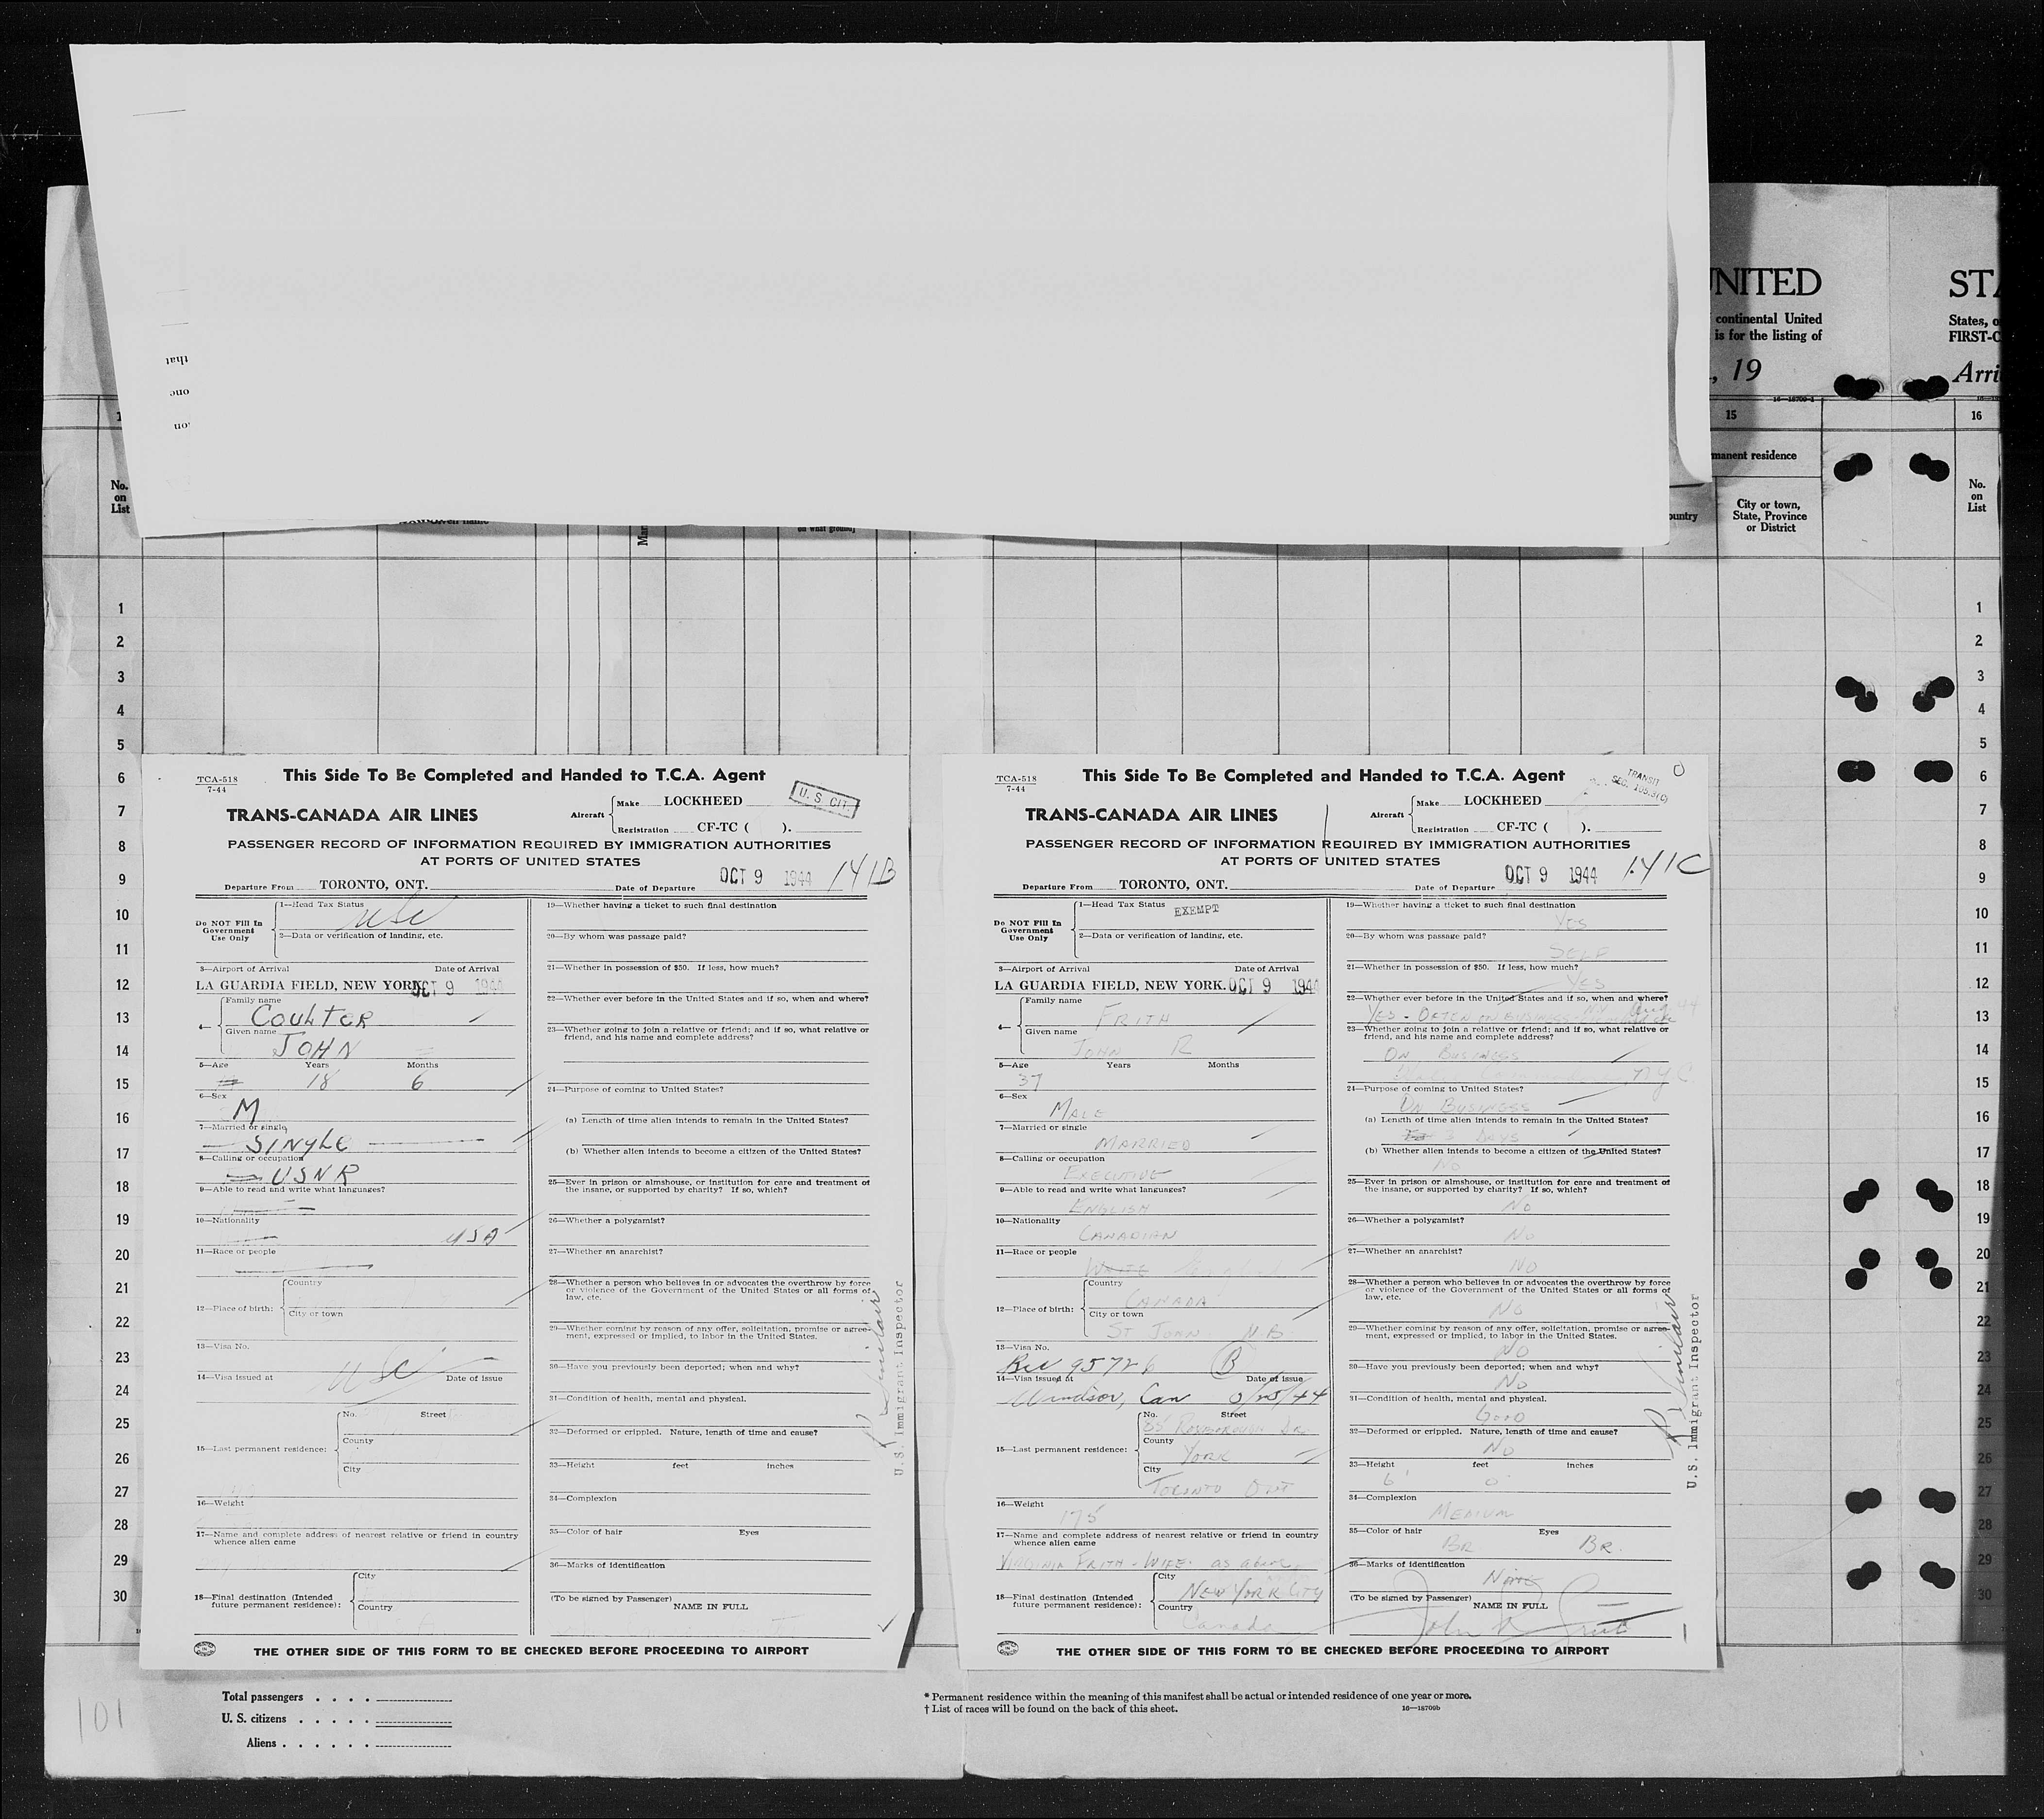 UNITED
STA
continental United
States, o
is for the listing of
FIRST-C
, 19
Arri
that
one
15
16
manent residence
No.
on
List
on what ground
ountry
City or town,
State, Province
or District
No.
on
List
1
2
3
4
5
6
7
8
9
10
11
12
13
14
15
16
17
18
19
20
21
22
23
24
25
26
27
28
29
30
TCA-518
7-44
This Side To Be Completed and Handed to T.C.A. Agent
U. S. CIT.
TRANS-CANADA AIR LINES
Aircraft
Make LOCKHEED
Registration CF-TC ( ).
PASSENGER RECORD OF INFORMATION REQUIRED BY IMMIGRATION AUTHORITIES
AT PORTS OF UNITED STATES
OCT 9 1944 141B
Departure From TORONTO, ONT. Date of Departure
Do NOT Fill In
Government
Use Only
1—Head Tax Status
USC
2—Data or verification of landing, etc.
3—Airport of Arrival Date of Arrival
LA GUARDIA FIELD, NEW YORK. OCT 9 1944
4— Family name
COULTER
Given name
JOHN
5—Age Years Months
18 6
6—Sex
M
7—Married or single
SINGLE
8—Calling or occupation
USNR
9—Able to read and write what languages?
10—Nationality
USA
11—Race or people
12—Place of birth:
Country
City or town
13—Visa No.
USC
14—Visa issued at Date of issue
15—Last permanent residence:
No. Street
County
City
16—Weight
17—Name and complete address of nearest relative or friend in country
whence alien came
18—Final destination (Intended
future permanent residence):
City
Country
19—Whether having a ticket to such final destination
20—By whom was passage paid?
21—Whether in possession of $50. If less, how much?
22—Whether ever before in the United States and if so, when and where?
23—Whether going to join a relative or friend; and if so, what relative or
friend, and his name and complete address?
24—Purpose of coming to United States?
(a) Length of time alien intends to remain in the United States?
(b) Whether alien intends to become a citizen of the United States?
25—Ever in prison or almshouse, or institution for care and treatment of
the insane, or supported by charity? If so, which?
26—Whether a polygamist?
27—Whether an anarchist?
28—Whether a person who believes in or advocates the overthrow by force
or violence of the Government of the United States or all forms of
law, etc.
29—Whether coming by reason of any offer, solicitation, promise or agree-
ment, expressed or implied, to labor in the United States.
30—Have you previously been deported; when and why?
31—Condition of health, mental and physical.
32—Deformed or crippled. Nature, length of time and cause?
33—Height feet inches
34—Complexion
35—Color of hair Eyes
36—Marks of identification
(To be signed by Passenger)
NAME IN FULL
R Sinclair
U.S. Immigrant Inspector
THE OTHER SIDE OF THIS FORM TO BE CHECKED BEFORE PROCEEDING TO AIRPORT
TCA-518
7-44
This Side To Be Completed and Handed to T.C.A. Agent
TRANSIT
SEC. 105.3(C)
TRANS-CANADA AIR LINES
Aircraft
Make LOCKHEED
Registration CF-TC ( ).
PASSENGER RECORD OF INFORMATION REQUIRED BY IMMIGRATION AUTHORITIES
AT PORTS OF UNITED STATES
OCT 9 1944 141C
Departure From TORONTO, ONT. Date of Departure
Do NOT Fill In
Government
Use Only
1—Head Tax Status
EXEMPT
2—Data or verification of landing, etc.
3—Airport of Arrival Date of Arrival
LA GUARDIA FIELD, NEW YORK. OCT 9 1944
4— Family name
FRITH
Given name
JOHN R
5—Age Years Months
37
6—Sex
MALE
7—Married or single
MARRIED
8—Calling or occupation
EXECUTIVE
9—Able to read and write what languages?
ENGLISH
10—Nationality
CANADIAN
11—Race or people
WHITE
12—Place of birth:
Country
CANADA
City or town
ST JOHN N.B
13—Visa No.
95726 B
14—Visa issued at Date of issue
Windsor, Can
15—Last permanent residence:
No. Street
County
YORK
City
TORONTO ONT
16—Weight
175
17—Name and complete address of nearest relative or friend in country
whence alien came
VIRGINIA FRITH - WIFE. as above
18—Final destination (Intended
future permanent residence):
City
NEW YORK CITY
Country
Canada
19—Whether having a ticket to such final destination
YES
20—By whom was passage paid?
SELF
21—Whether in possession of $50. If less, how much?
YES
22—Whether ever before in the United States and if so, when and where?
YES - OFTEN ON BUSINESS NY Aug 44
23—Whether going to join a relative or friend; and if so, what relative or
friend, and his name and complete address?
ON BUSINESS
NYC
24—Purpose of coming to United States?
ON BUSINESS
(a) Length of time alien intends to remain in the United States?
3 DAYS
(b) Whether alien intends to become a citizen of the United States?
NO
25—Ever in prison or almshouse, or institution for care and treatment of
the insane, or supported by charity? If so, which?
NO
26—Whether a polygamist?
NO
27—Whether an anarchist?
NO
28—Whether a person who believes in or advocates the overthrow by force
or violence of the Government of the United States or all forms of
law, etc.
NO
29—Whether coming by reason of any offer, solicitation, promise or agree-
ment, expressed or implied, to labor in the United States.
NO
30—Have you previously been deported; when and why?
NO
31—Condition of health, mental and physical.
GOOD
32—Deformed or crippled. Nature, length of time and cause?
NO
33—Height feet inches
6' 0"
34—Complexion
MEDIUM
35—Color of hair Eyes
BR BR.
36—Marks of identification
NONE
(To be signed by Passenger)
NAME IN FULL
John R Frith
R Sinclair
U.S. Immigrant Inspector
THE OTHER SIDE OF THIS FORM TO BE CHECKED BEFORE PROCEEDING TO AIRPORT
101
Total passengers . . . .
U. S. citizens . . . . .
Aliens . . . . . .
* Permanent residence within the meaning of this manifest shall be actual or intended residence of one year or more.
† List of races will be found on the back of this sheet.
16—18709b